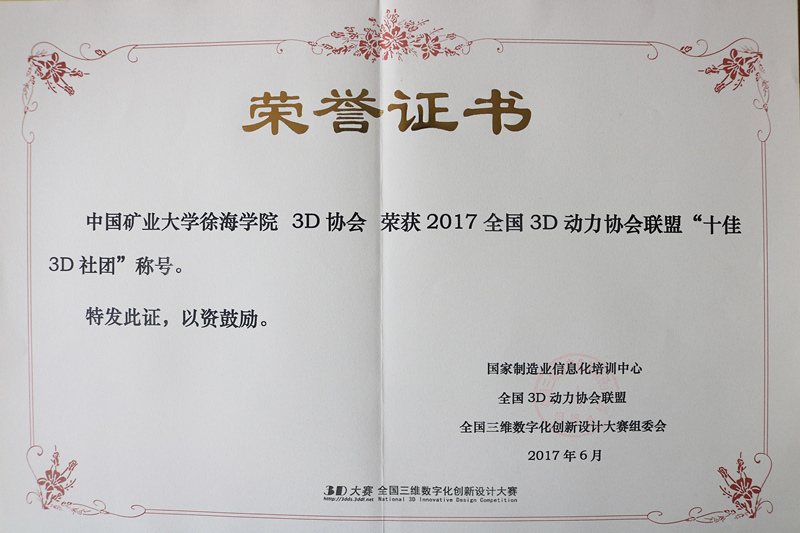 荣誉证书
中国矿业大学徐海学院 3D协会 荣获2017全国3D动力协会联盟“十佳
3D社团”称号。
特发此证，以资鼓励。
国家制造业信息化培训中心
全国3D动力协会联盟
全国三维数字化创新设计大赛组委会
2017年6月
3D大赛 全国三维数字化创新设计大赛
http://3dds.3ddl.net National 3D Innovative Design Competition